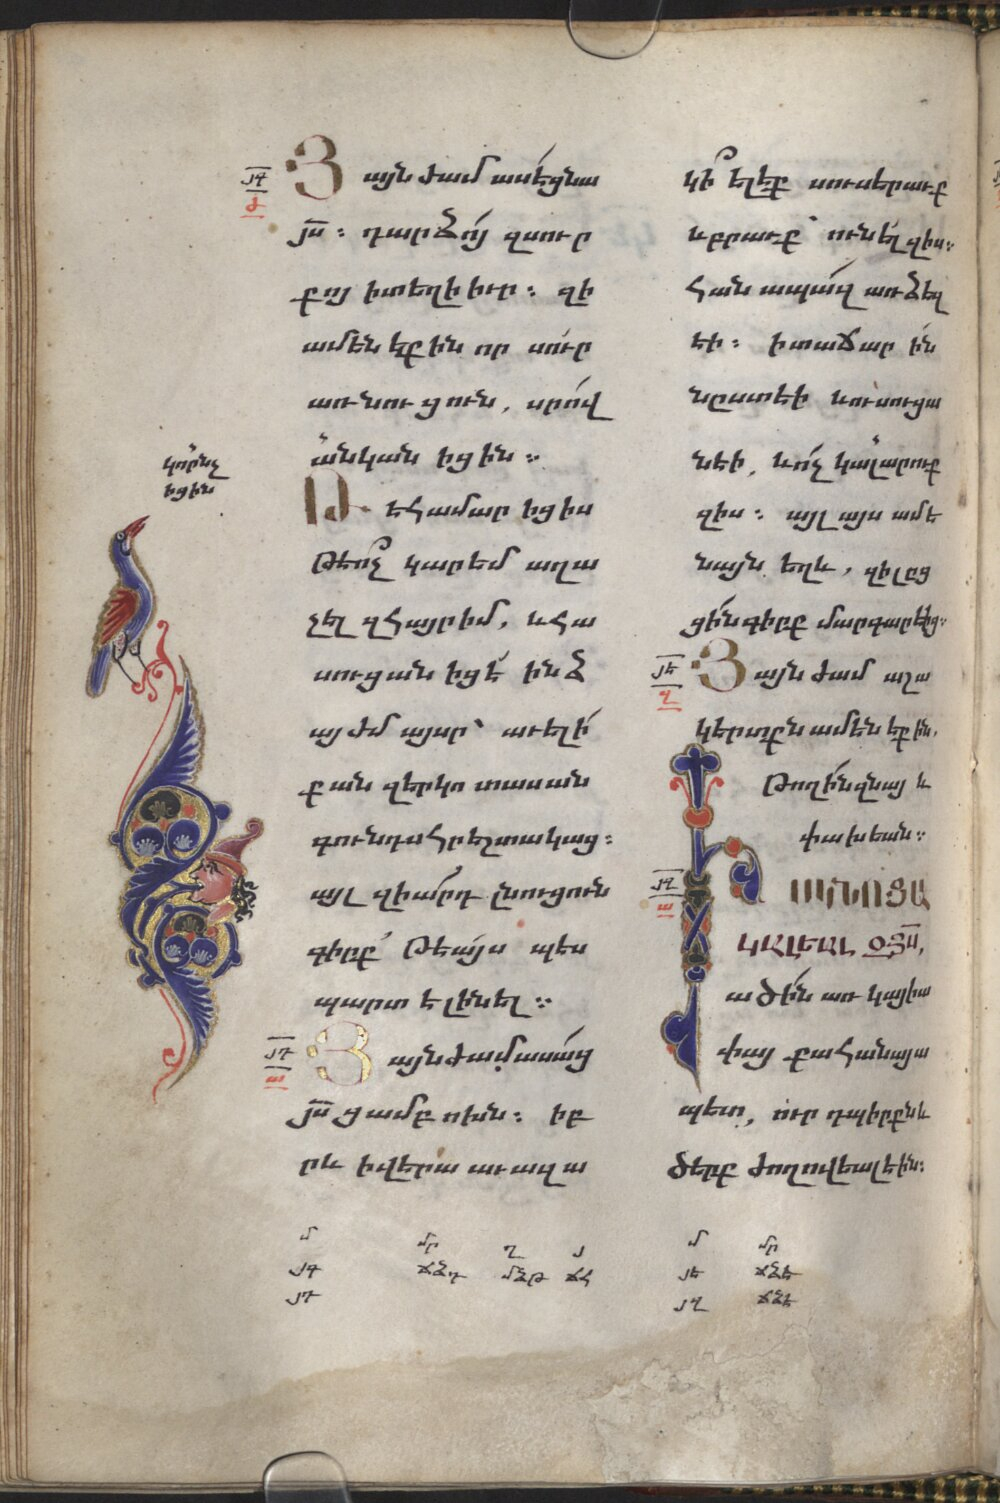 կորնչ
իցին
յգ
ժ
Յայնժամ ասէ ցնա
յս։ դարձոյ զսուր
քոյ ի տեղի իւր։ զի
ամենեքին որ սուր
առնուցուն, սրով
անկանիցին։
Թե համարիցիս
թե ոչ կարեմ աղա
չել զհայր իմ, և հա
սուցանիցէ ինձ
այժմ այսր՝ աւելի
քան զերկոտասան
գունդս հրեշտակաց։
այլ զիարդ լնուցուն
գիրք՝ թե այսպես
պարտ է լինել։
յդ
ա
Յայնժամ ասաց
յս ցամբոխն։ իբ
րև ի վերա աւազա
կի ելէք սուսերաւք
և բրաւք՝ ունել զիս։
Հանապազ առ ձեզ
էի։ ի տաճարին
նըստեի և ուսուցա
նեի, և ոչ կալարուք
զիս։ այլ այս ամե
նայն եղև, զի լըց
ցին գիրք մարգարէից։
յե
զ
Յայնժամ աշա
կերտքն ամենեքին,
թողին զնայ և
փախեան։
յզ
ա
Եւ ՆՈՑԱ
ԿԱԼԵԱԼ ԶՅՍ,
ածին առ կայիա
փայ քահանայա
պետ, ուր դպիրքն և
ծերք ժողովեալ էին։
մ մր ղ յ
յգ ճձդ մձթ ճհ
յդ
մ մր
յե ճձե
յզ ճձէ